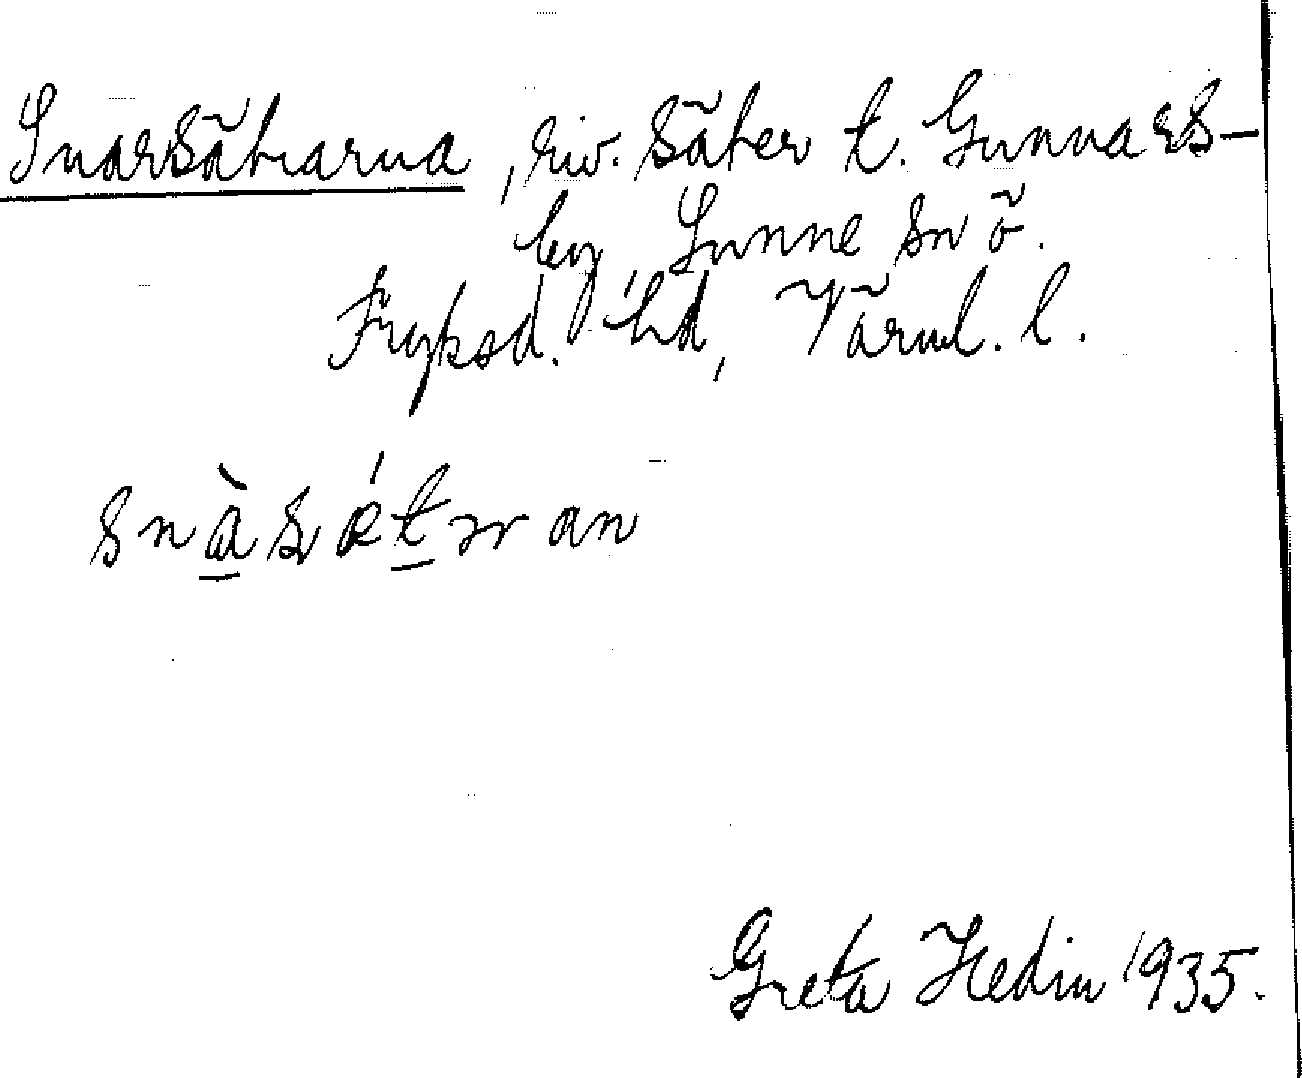 Snarsätrarna, riv. säter t. Gunnars-
by Sunne sn ö.
Fryksd. hd, Värml. l.
snàsǽtran
Greta Hedin 1935.